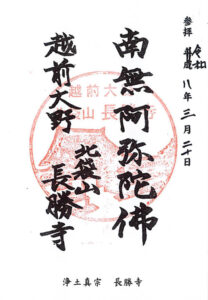 参拝 令和 八年 三月 二十日
南無阿弥陀佛
北袋山 長勝寺
越前大野
越前大
山 長
浄土真宗 長勝寺